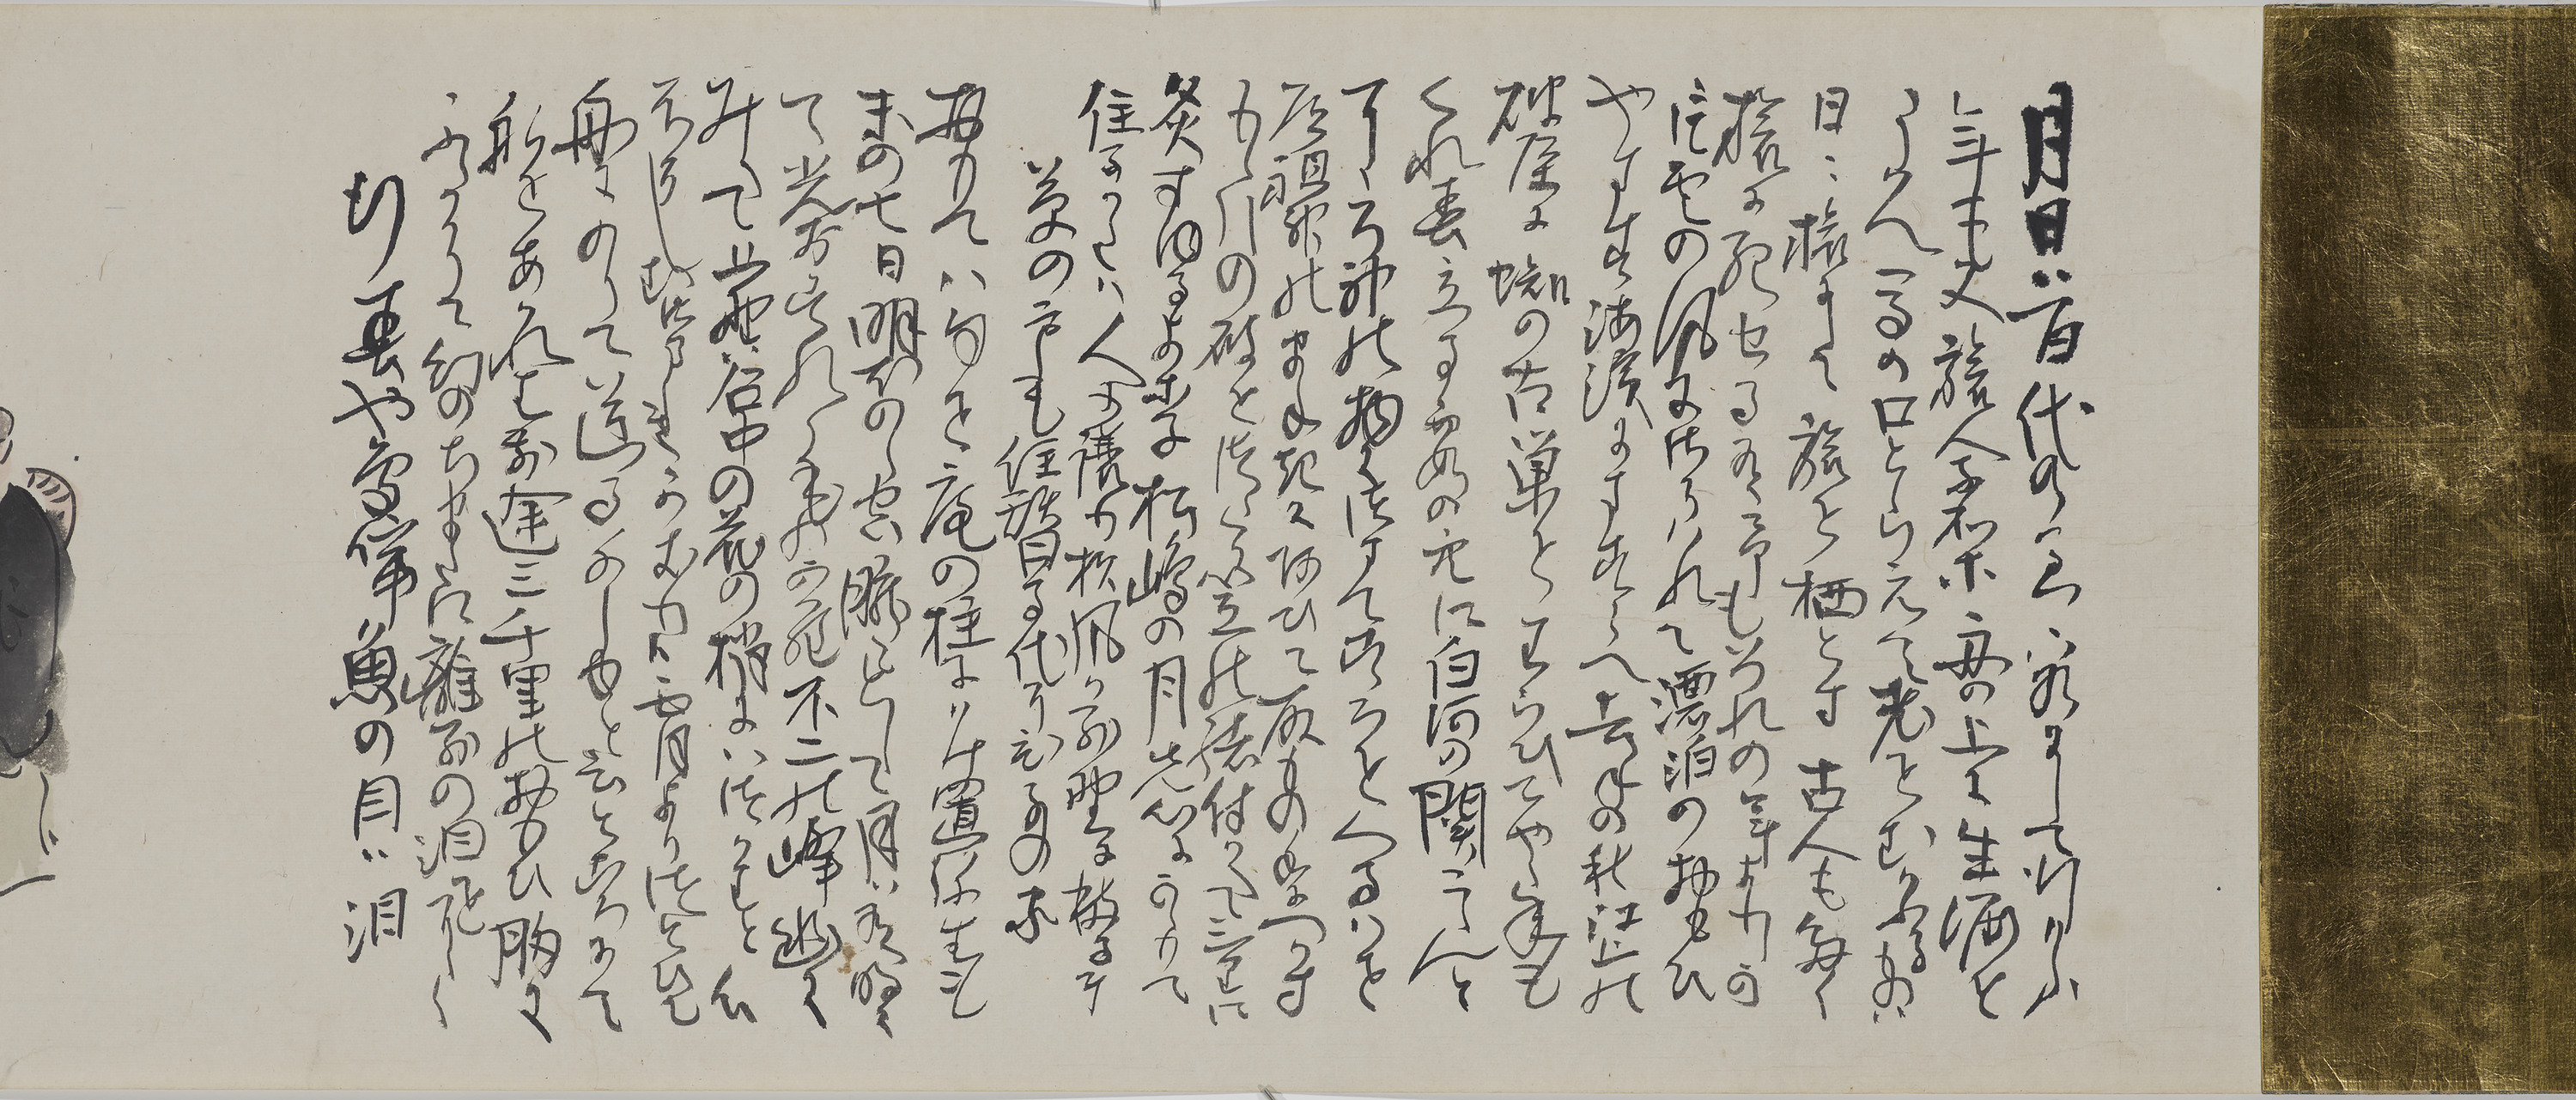 月日ハ百代の過客にして行かふ
年も又旅人也舟の上に生涯を
うかへ馬の口とらえて老をむかふる者ハ
日々旅にして旅を栖とす古人も多く
旅に死せるあり予もいつれの年よりか
片雲の風にさそハれて漂泊のおもひ
やます海濱にさすらへ去年の秋江上の
破屋に蜘の古巣をはらひてやゝ年も
くれ春立る霞の空に白河の関こえんと
そゝろ神の物につきてこゝろをくるハせ
道祖神のまねきにあひて取もの手につかす
もゝ引の破をつゝり笠の緒付かへて三里に
灸すゆるより松嶋の月先心にかゝりて
住るかたハ人に譲り杉風か別墅に移るに
草の戸も住替る代そひなの家
面八句を庵の柱にかけ置弥生も
末の七日明ほのゝ空朧々として月ハ有明に
て光おさまれる物から不二の峰幽に
みえて上野谷中の花の梢又いつかはと心
ほそしむつましきかきりハ宵よりつとひて
舟にのりて送る千しゆと云ところにて
船をあかれは前途三千里のおもひ胸に
ふさかりて幻のちまたに離別の泪をそゝく
行春や鳥啼魚の目ハ泪